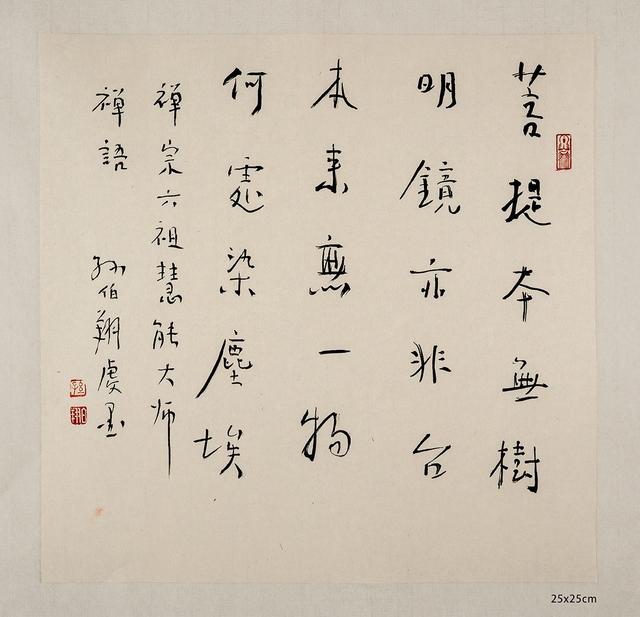 菩提本無樹
明鏡亦非台
本來無一物
何處染塵埃
禪宗六祖慧能大师
禪語
孙伯翔虔墨
25x25cm